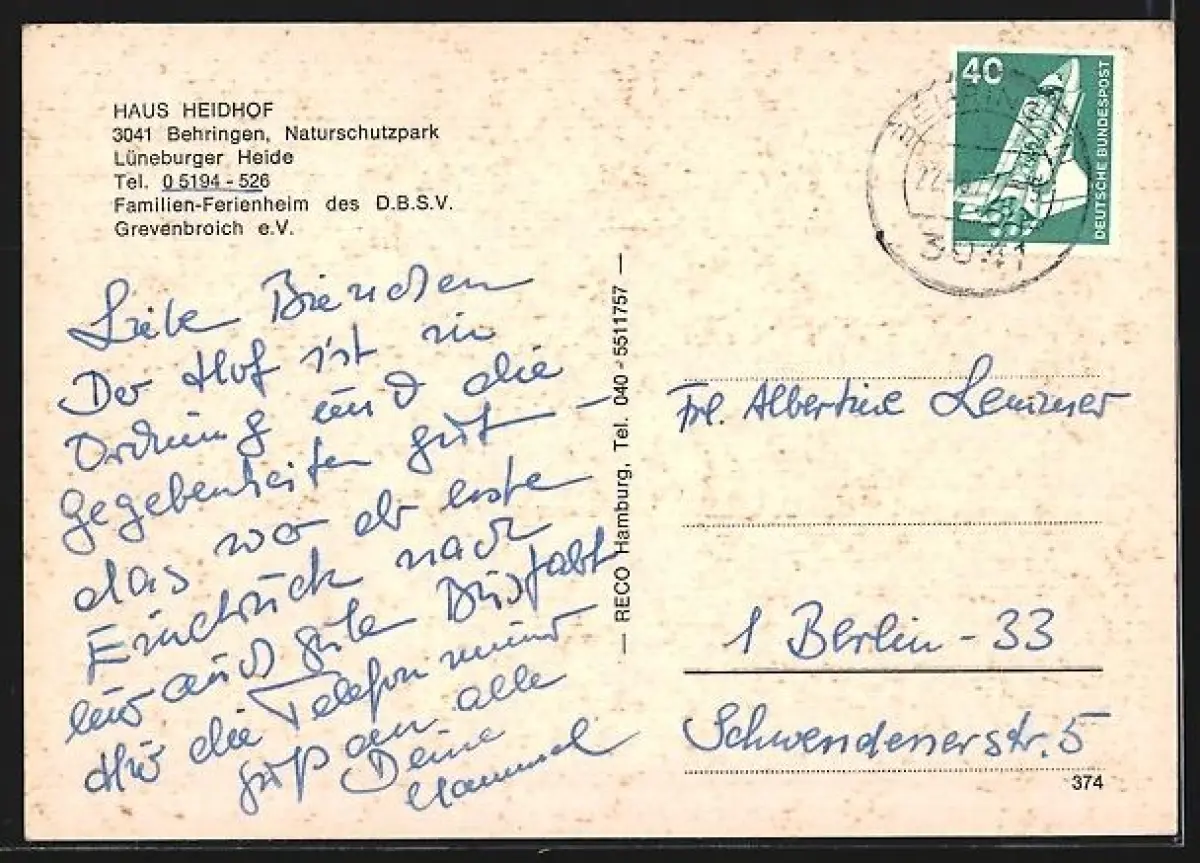 HAUS HEIDHOF
3041 Behringen, Naturschutzpark
Lüneburger Heide
Tel. 0 5194 - 526
Familien-Ferienheim des D.B.S.V.
Grevenbroich e.V.
Liebe Bienchen
Der Hof ist in
Ordnung und die
gegebenheiten gut -
das war der erste
Eindruck nach
auch guter Busfahrt
Hir die Telefon numer
gruß an alle
Deine
— RECO Hamburg, Tel. 040 - 5511757 —
40
DEUTSCHE BUNDESPOST
3041
Frl. Albertine Lemmer
1 Berlin - 33
Schwendenerstr. 5
374